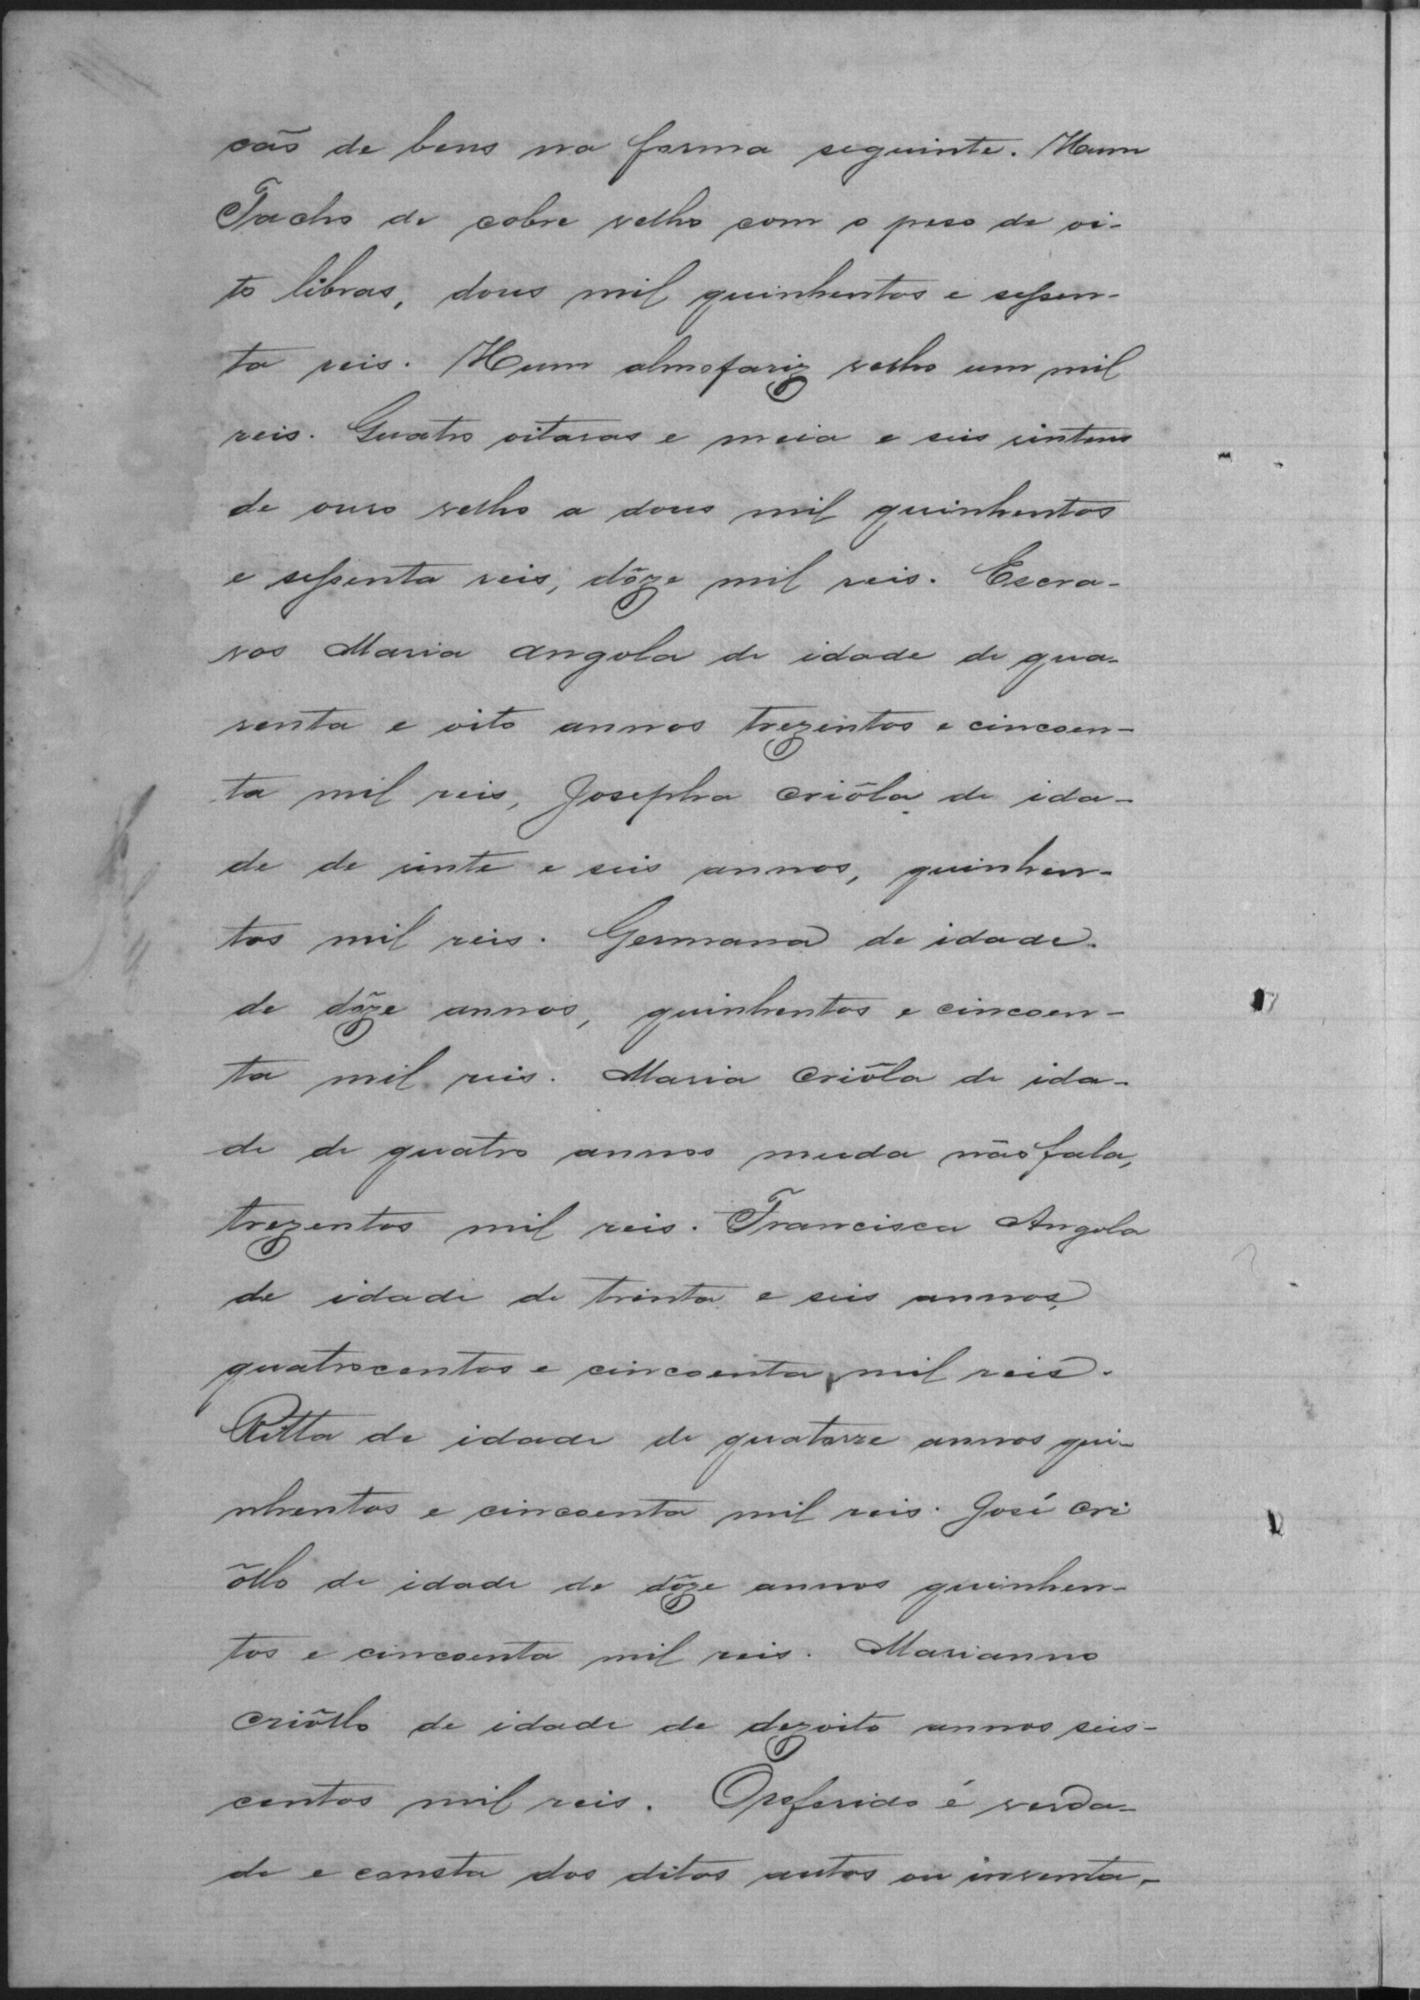 cão de bens na forma seguinte. Hum
Tacho de cobre velho com o peso de oi-
to libras, dous mil quinhentos e sessen-
ta reis. Hum almofariz velho um mil
reis. Quatro oitavas e meia e seis vintens
de ouro velho a dous mil quinhentos
e sessenta reis, dôze mil reis. Escra-
vos Maria Angola de idade de qua-
renta e oito annos trezentos e cincoen-
ta mil reis, Josepha Criôla de ida-
de de vinte e seis annos, quinhen-
tos mil reis. Germana de idade
de dôze annos, quinhentos e cincoen-
ta mil reis. Maria Criôla de ida-
de de quatro annos muda não fala,
trezentos mil reis. Francisca Angola
de idade de trinta e seis annos,
quatrocentos e cincoenta mil reis.
Ritta de idade de quatorze annos qui-
nhentos e cincoenta mil reis. José Cri
ôllo de idade de dôze annos quinhen-
tos e cincoenta mil reis. Marianno
Criôllo de idade de dezoito annos seis-
centos mil reis. O referido é verda-
de e consta dos ditos autos ou inventa-